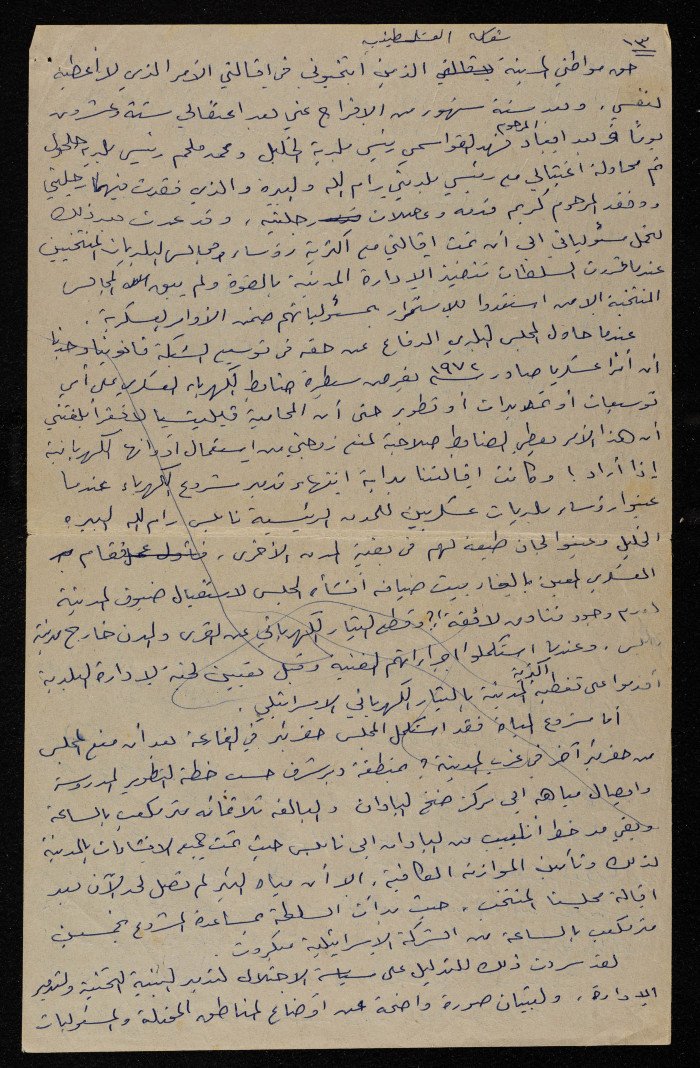 ١٣
حق مواطني المدينة الذين انتخبوني في اقالتي الأمر الذي لا أعطيه
لنفسي. وبعد ستة شهور من الإفراج عني بعد اعتقالي ستة وعشرون
يوماً بعد ابعاد المرحوم فهد القواسمي رئيس بلدية الخليل ومحمد ملحم رئيس بلدية حلحول
ثم محاولة اغتيالي مع رئيس بلديتي رام الله والبيرة والذي فقدت فيها رجليّ
وفقد المرحوم كريم قدمه وعضلات رجليه، وقد عدت بعد ذلك
لتحمل مسئولياتي الى أن تمت اقالتي مع أكثرية رؤساء ومجالس البلديات المنتخبين
عندما قررت السلطات تنفيذ الإدارة المدنية بالقوة ولم يبق من المجالس
المنتخبة الا من استعدوا للاستمرار بمسئولياتهم ضمن الأوامر العسكرية.
عندما حاول المجلس البلدي الدفاع عن حقه في توسيع الشبكة قانونياً وجدنا
أن أمراً عسكرياً صادر سنة ١٩٧٢ يفرض سيطرة ضابط الكهرباء العسكري على أي
توسيعات أو تمديدات أو تطوير حتى أن المحامية فيليتسيا لانغر أبلغتني
أن هذا الأمر يعطي الضابط صلاحية لمنع زوجتي من استعمال أدواتها الكهربائية
إذا أراد! وكانت اقالتنا بداية انتهاء وتدمير مشروع الكهرباء عندما
عينوا رؤساء بلديات عسكريين للمدن الرئيسية نابلس رام الله البيرة
الخليل وعينوا لجان طيعة لهم في بقية المدن الأخرى، فقام
العسكري المعين بإلغاء بيت ضيافة أنشأه المجلس لاستقبال ضيوف المدينة
لعدم وجود فنادق لائقة!؟ وقطع التيار الكهربائي عن القرى والمدن خارج مدينة
نابلس، وعندما استكملوا اجراءاتهم الفنية وقبل تعيين لجنة لإدارة البلدية
أقدموا على تغطية أكثرية المدينة بالتيار الكهربائي الاسرائيلي.
أما مشروع المياه فقد استكمل المجلس حفر بئر في الفارعة بعد أن منع المجلس
من حفر بئر آخر في غرب المدينة بمنطقة ديرشرف حسب خطة التطوير المدروسة
وايصال مياهه الى مركز ضخ الباذان والبالغة ثلاثمائة متر مكعب بالساعة
وبقي مد خط أنابيب من الباذان الى نابلس حيث تمت جميع الانشاءات بالمدينة
لذلك وتأمين الموازنة الكافية، الا أن مياه البئر لم تصل لحد الآن بعد
اقالة مجلسنا المنتخب، حيث بدأت السلطة بمساعدة المشروع بخمسين
متر مكعب بالساعة من الشركة الإسرائيلية ميكروت.
لقد سردت ذلك للتدليل على سياسة الاحتلال لتدمير البنية التحتية ولتدمير
الإدارة، ولتبيان صورة واضحة عن أوضاع المناطق المحتلة والمسئوليات